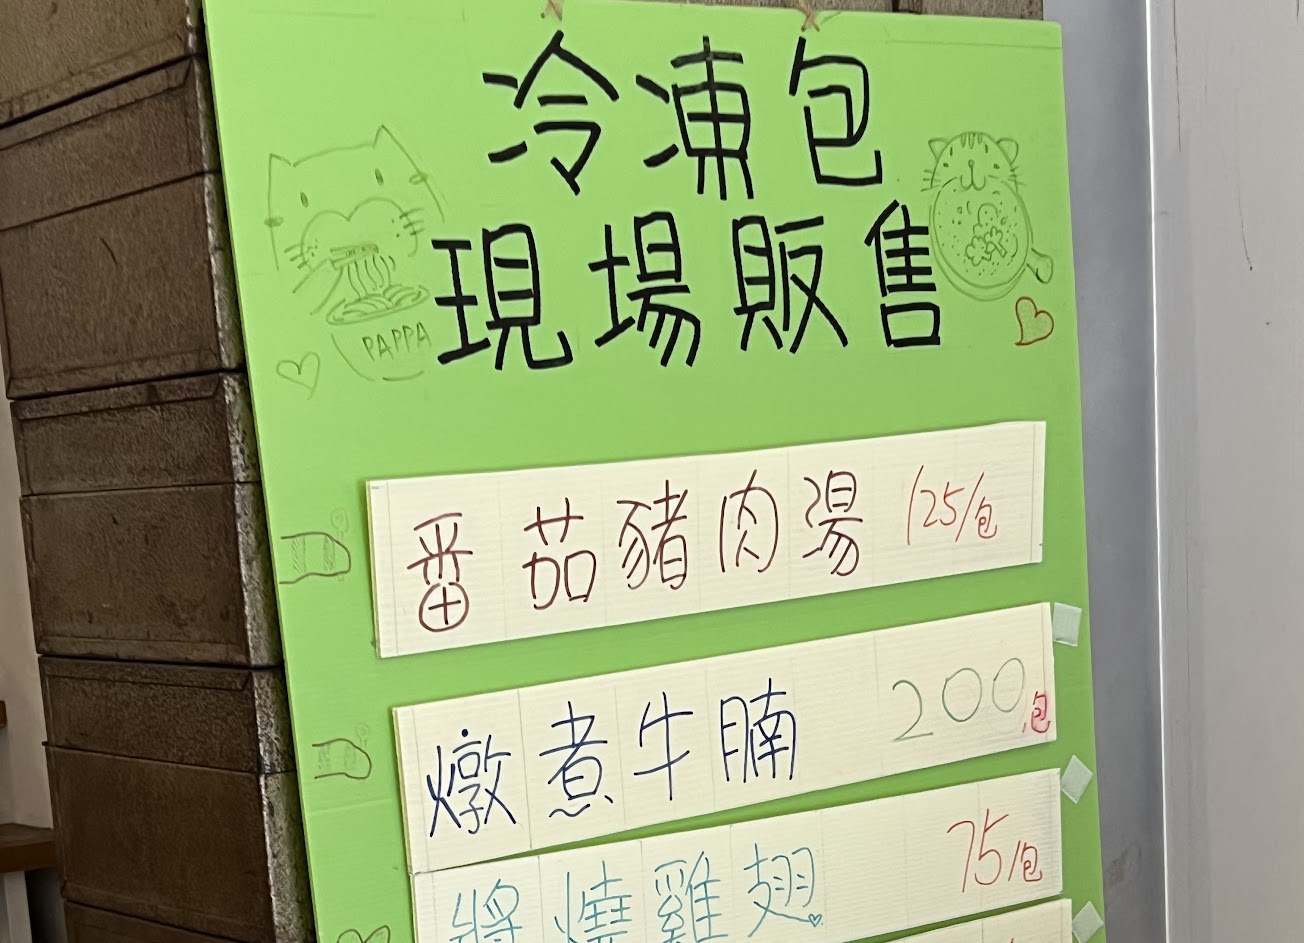 冷凍包
現場販售
PAPPA
番茄豬肉湯 125/包
燉煮牛腩 200/包
將燒雞翅 75/包